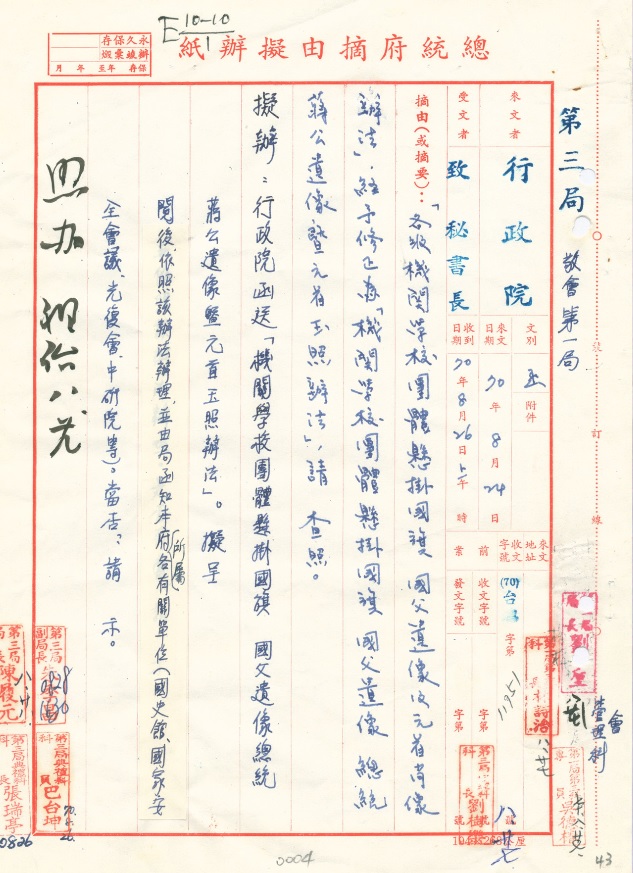 E 10-10/1
總統府摘由擬辦紙
永久保存
辦竣彙燬
保存 年至 年 月
第三局 敬會第一局
來文者 行政院 文別 函 附件
來文日期 70年8月24日
來文字號 (70)台 字第11951號
受文者 致秘書長
收到日期 70年8月26日 午 時
收文字號 字第 號
前案 發文字號 字第 號
摘由(或摘要):「各級機關學校團體懸掛國旗 國父遺像及元首肖像
辦法」,經予修正為「機關學校團體懸掛國旗 國父遺像 總統
蔣公遺像暨元首玉照辦法」,請 查照。
擬辦:行政院函送「機關學校團體懸掛國旗 國父遺像總統
蔣公遺像暨元首玉照辦法」。擬呈
閱後依照該辦法辦理,並由局函知本府所屬各有關單位(國史館、國家安
全會議、光復會、中研院等)。當否?請 示。
照办
訂 線
會
管理科
第三局
副局長
0828
第三局
局長
陳履元
第三局典禮科
科員
巴台坤
70.8.26
第三局典禮科
科長
張瑞亭
0826
八廿七
0004
43